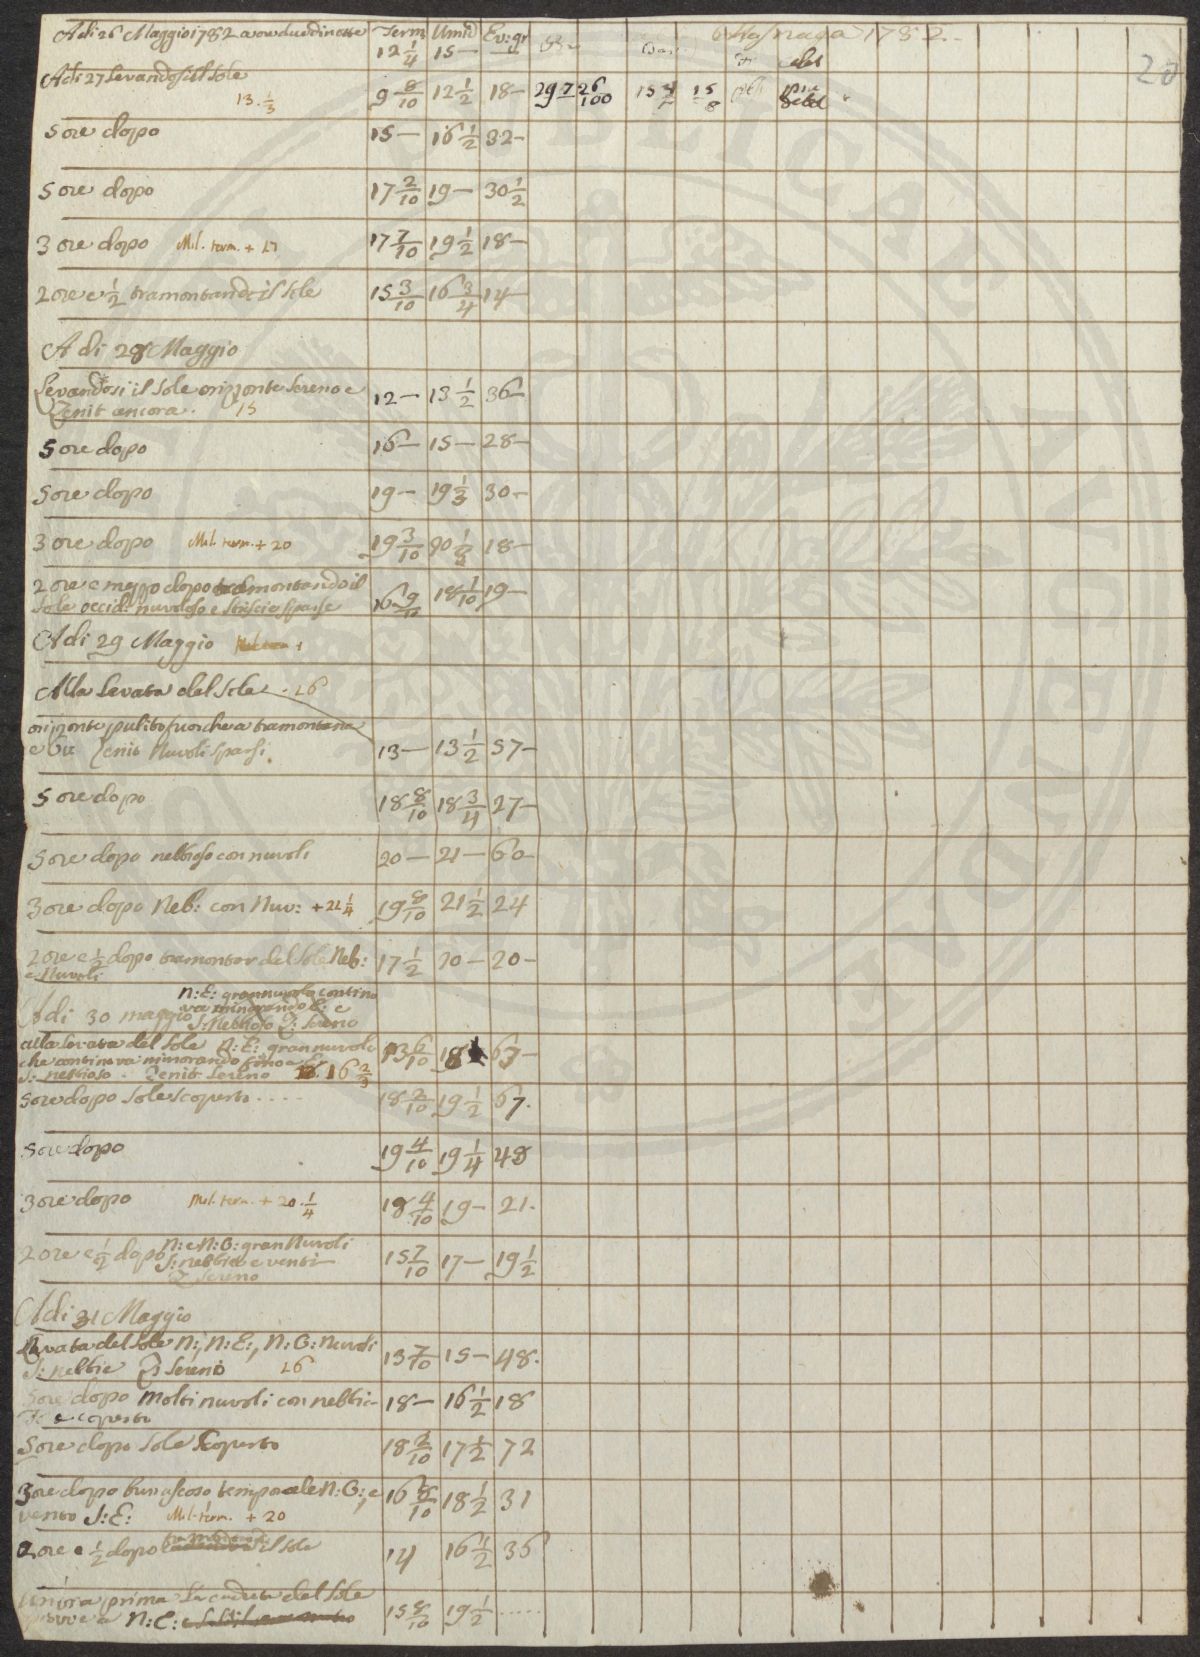 Adi 26 Maggio 1782 a ore due di notte Term Umid Ev: gr Osnaga 1782.
12 1/4 15 —
20
Adi 27 Levandosi il Sole 13. 1/3 9 8/10 12 1/2 18 —
5 ore dopo 15 — 16 1/2 32 —
5 ore dopo 17 2/10 19 — 30 1/2
3 ore dopo Mel. term. + 17 17 7/10 19 1/2 18 —
2 ore e 1/2 tramontando il Sole 15 3/10 16 3/4 14 —
Adi 28 Maggio
Levandosi il Sole orizzonte Sereno e
Zenit ancora. 15 12 — 13 1/2 36 —
5 ore dopo 16 — 15 — 28 —
5 ore dopo 19 — 19 1/3 30 —
3 ore dopo Mel. term. + 20 19 3/10 18 —
2 ore e mezzo dopo tramontando il
Sole occid: nuvoloso e striscie sparse 16 9/10 18 1/10 19 —
Adi 29 Maggio
Alla Levata del Sole . 16
orizonte pulito fuorche a tramontana
e Zenit Nuvoli sparsi. 13 — 13 1/2 57 —
5 ore dopo 18 8/10 18 3/4 27 —
5 ore dopo nebbioso con nuvoli 20 — 21 — 60 —
3 ore dopo Neb: con Nuv: + 21 1/4 19 8/10 21 1/2 24
2 ore e 1/2 dopo tramontar del Sole Neb:
e Nuvoli 17 1/2 20 — 20 —
N: E: gran nuvolo contino
Adi 30 maggio va minorando E: e
S: Nebbioso Z: Sereno
alla levata del Sole N: E: gran nuvolo
che continova minorando sino e
S: nebbioso. Zenit Sereno 16 2/3 13 6/10 18 67 —
5 ore dopo Sole scoperto . . . . 18 2/10 19 1/2 67.
5 ore dopo 19 4/10 19 1/4 48
3 ore dopo Mel. term. + 20 1/4 18 4/10 19 — 21.
2 ore e 1/2 dopo N: e N: O: gran Nuvoli
S: nebbie e venti
Z Sereno 15 7/10 17 — 19 1/2
Adi 31 Maggio
Levata del Sole N:, N: E:, N: O: Nuvoli
S: nebbie Z: Sereno 16 13 7/10 15 — 48.
5 ore dopo Molti nuvoli con nebbi-
e coperto 18 — 16 1/2 18
5 ore dopo Sole Scoperto 18 2/10 17 1/2 72
3 ore dopo burascoso temporale N: O:, e
vento S: E: Mel. term. + 20 16 8/10 18 1/2 31
2 ore e 1/2 dopo tramontando il Sole 14 16 1/2 36
un'ora prima la caduta del Sole
piovve a N: E: 15 8/10 19 1/2 ......